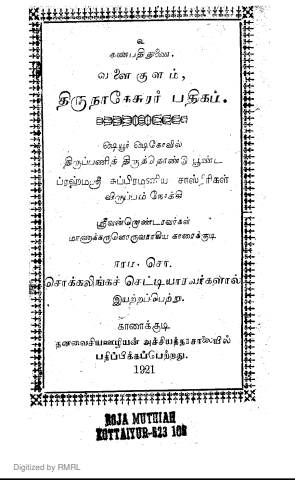 உ
கணபதிதுணை.
வளைகுளம்,
திருநாகேசுரர் பதிகம்.
ஷையூர் ஷைகோவில்
திருப்பணித் திருத்தொண்டு பூண்ட
ப்ரஹ்மஸ்ரீ சுப்பிரமணிய சாஸ்திரிகள்
விருப்பம் நோக்கி
ஸ்ரீவன்றொண்டரவர்கள்
மாணாக்கருளொருவராகிய காரைக்குடி
ராம. சொ.
சொக்கலிங்கச் செட்டியாரவர்களால்
இயற்றப்பெற்று.
காணக்குடி
தனவைசியஊழியன் அச்சியந்த்ரசாலையில்
பதிப்பிக்கப்பெற்றது.
1921
ROJA MUTHIAH
KOTTAIYUR-623 106
Digitized by RMRL